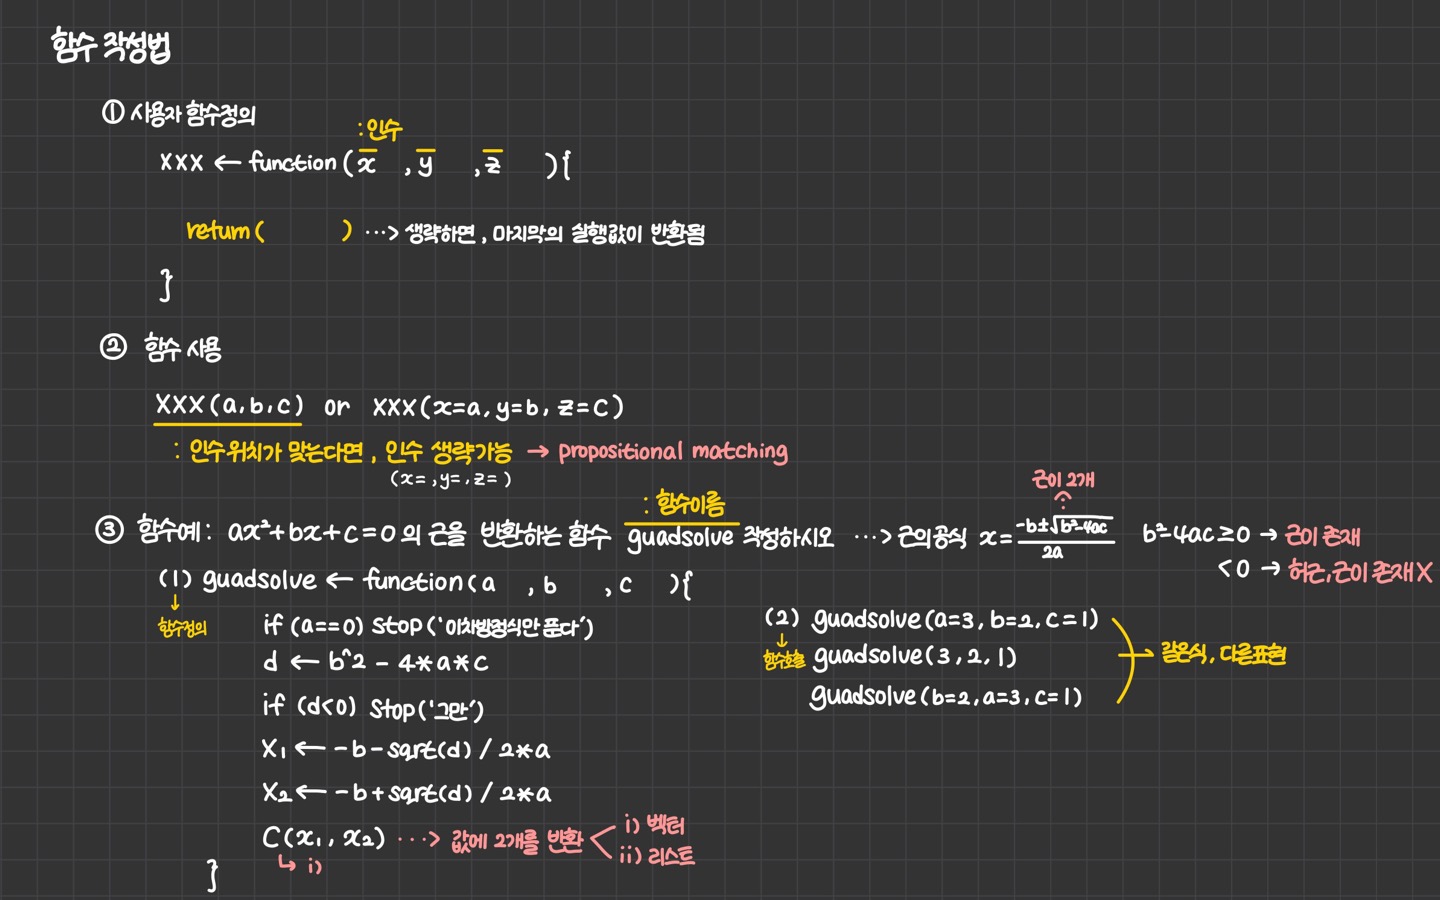 함수 작성법
① 사용자 함수정의
: 인수
XXX ← function ( x , y , z ) {
return ( ) ···> 생략하면, 마지막의 실행값이 반환됨
}
② 함수 사용
XXX(a,b,c) or XXX(x=a, y=b, z=C)
: 인수위치가 맞는다면, 인수 생략가능 → propositional matching
(x= ,y= ,z= )
: 함수이름
근이 2개
③ 함수예: ax²+bx+c=0의 근을 반환하는 함수 guadsolve 작성하시오 ···> 근의공식 x = -b±√b²-4ac / 2a b²-4ac ≥ 0 → 근이 존재
< 0 → 허근, 근이 존재 X
(1) guadsolve ← function( a , b , c ) {
↓ 함수정의
if (a==0) stop('이차방정식만 푼다')
d ← b^2 - 4*a*c
if (d<0) stop('그만')
X₁ ← -b-sqrt(d) / 2*a
X₂ ← -b+sqrt(d) / 2*a
C(x₁, x₂) ···> 값에 2개를 반환 < i) 벡터
ii) 리스트
↳ i)
}
(2) guadsolve(a=3, b=2, c=1)
↓ 함수호출
guadsolve(3, 2, 1) → 같은식, 다른표현
guadsolve(b=2, a=3, c=1)